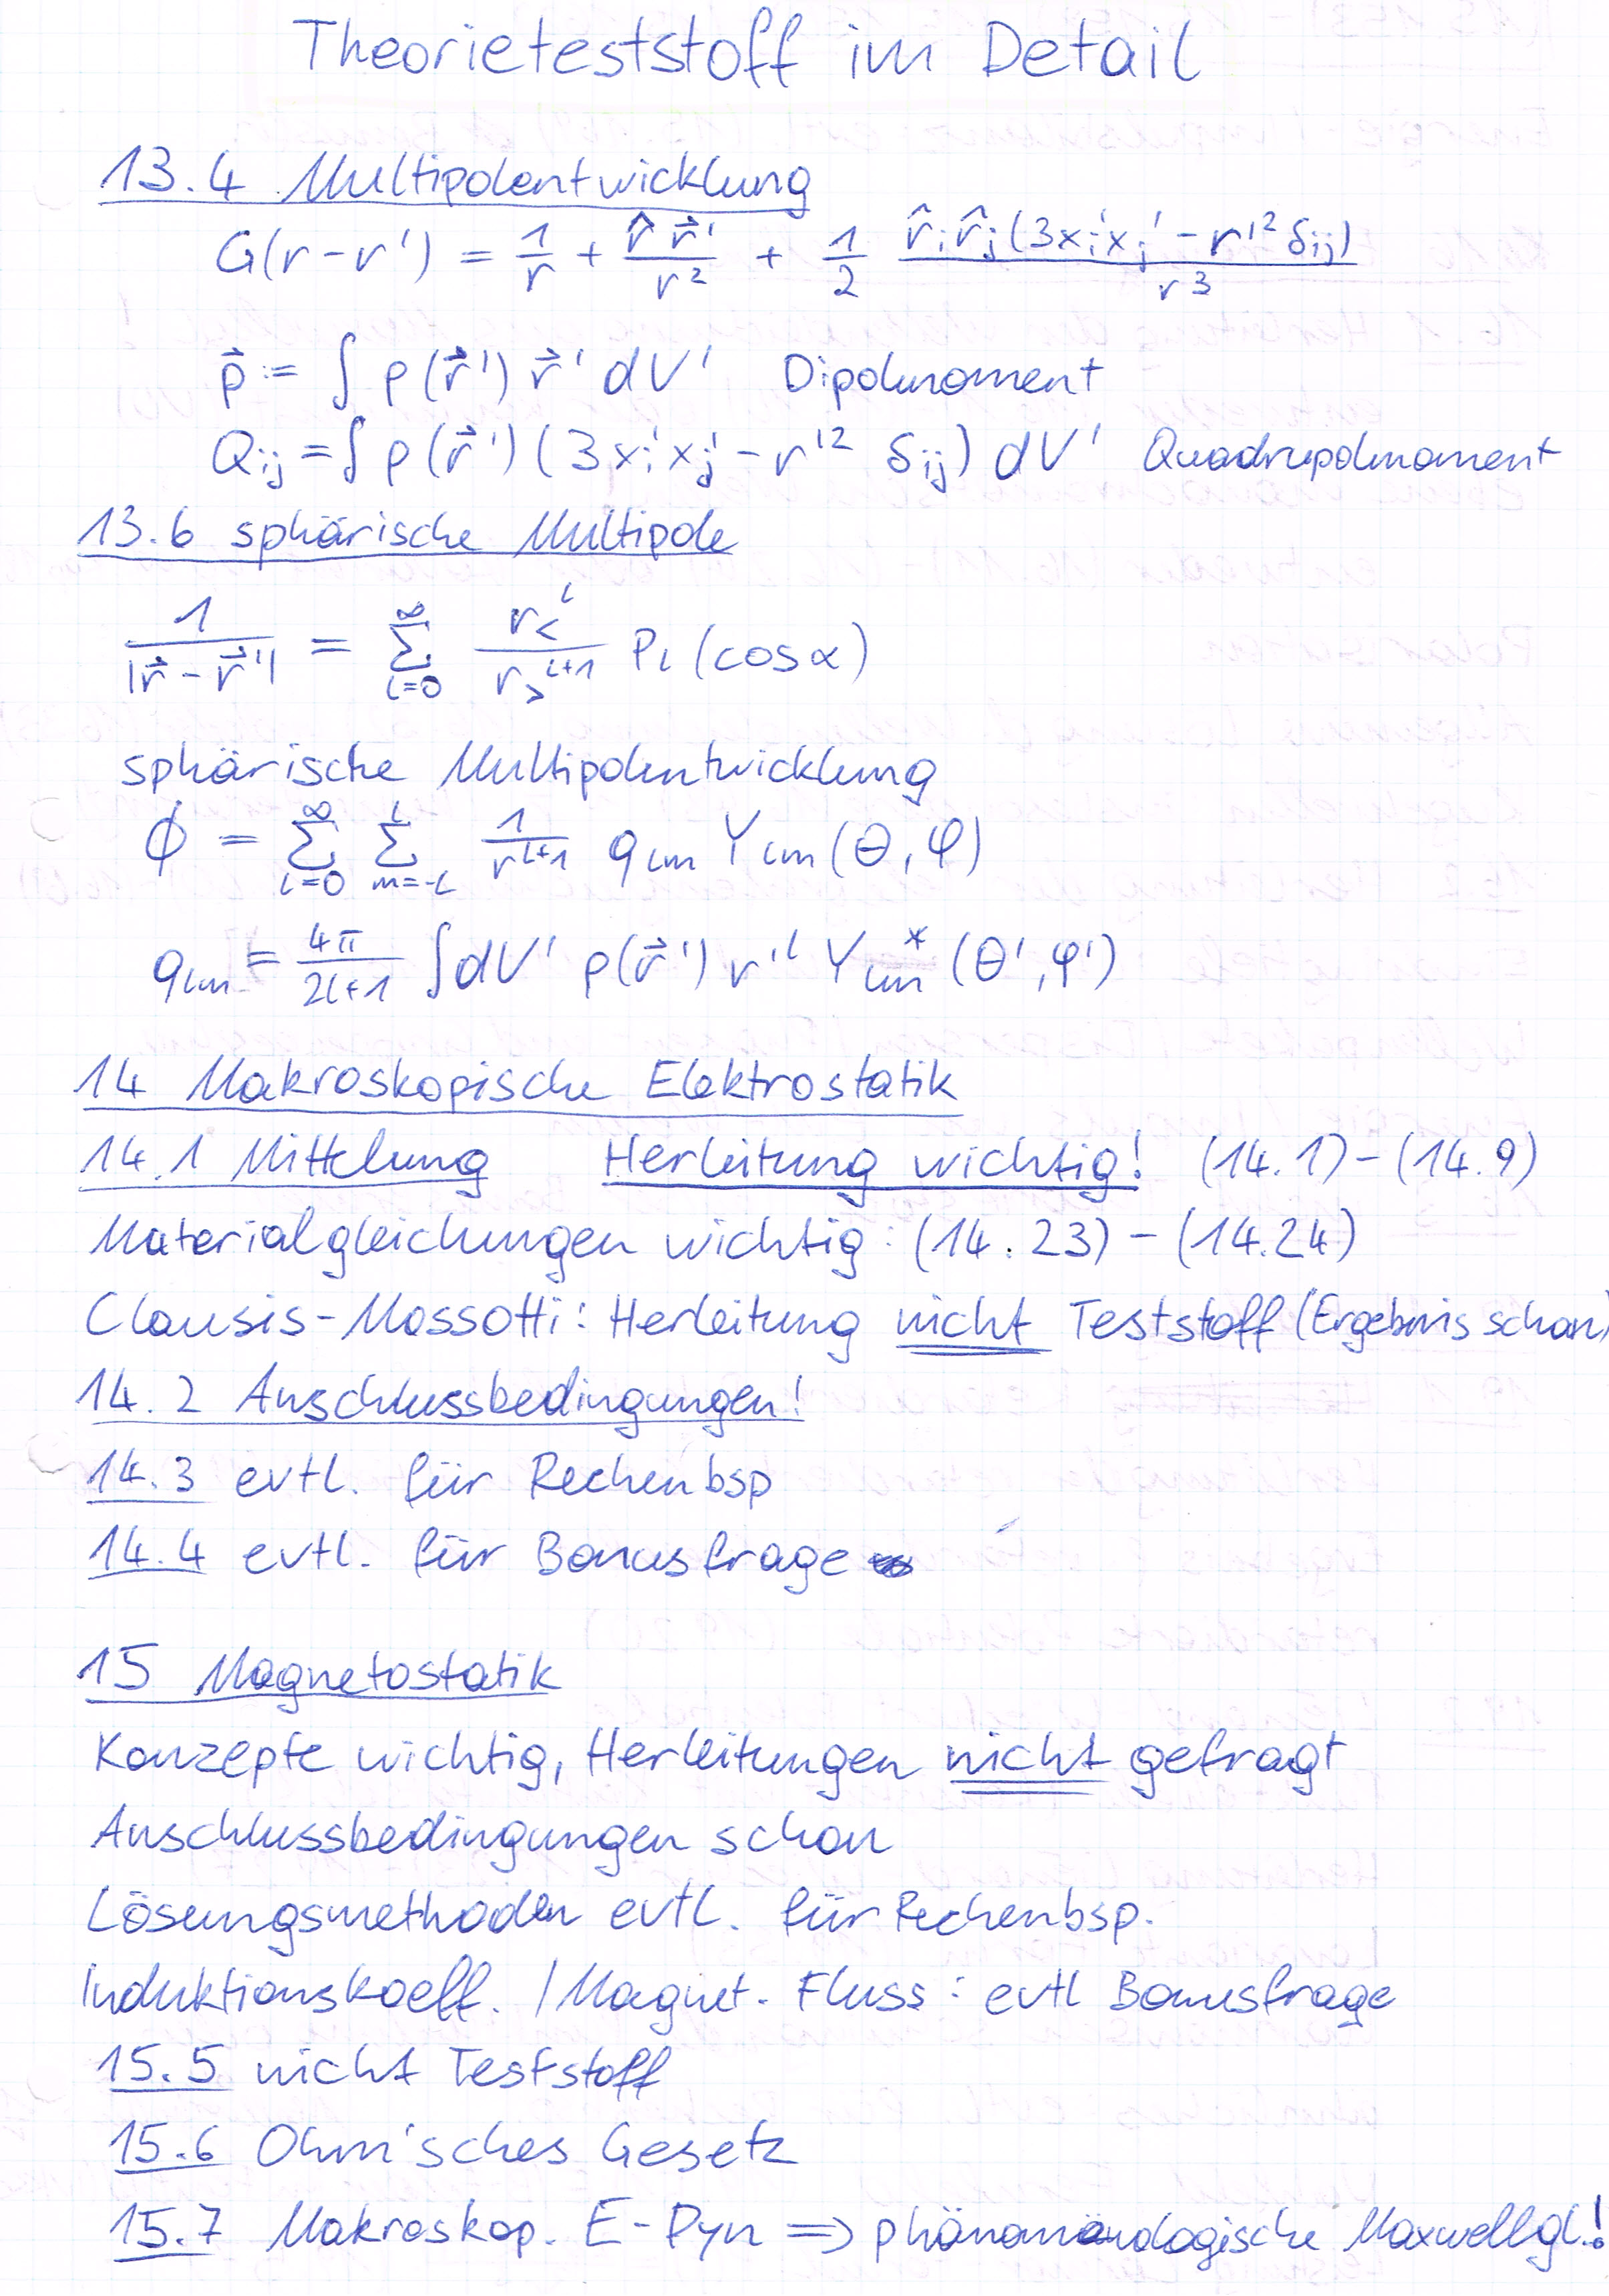 Theorieteststoff im Detail
13.4 Multipolentwicklung
G(r-r') = 1/r + r̂ r⃗'/r² + 1/2 r̂ᵢr̂ⱼ(3xᵢ'xⱼ' - r'² δᵢⱼ)/r³
p⃗ := ∫ ρ(r⃗') r⃗' dV' Dipolmoment
Qᵢⱼ = ∫ ρ(r⃗')(3xᵢ'xⱼ' - r'² δᵢⱼ) dV' Quadrupolmoment
13.6 sphärische Multipole
1/|r⃗ - r⃗'| = Σ_{l=0}^{∞} r_<^l / r_>^{l+1} P_l (cos α)
sphärische Multipolentwicklung
ϕ = Σ_{l=0}^{∞} Σ_{m=-l}^{l} 1/r^{l+1} q_{lm} Y_{lm}(θ, φ)
q_{lm} = 4π/(2l+1) ∫dV' ρ(r⃗') r'^l Y_{lm}^*(θ', φ')
14 Makroskopische Elektrostatik
14.1 Mittelung Herleitung wichtig! (14.1)-(14.9)
Materialgleichungen wichtig: (14.23) - (14.24)
Clausis-Mossotti: Herleitung nicht Teststoff (Ergebnis schon)
14.2 Anschlussbedingungen!
14.3 evtl. für Rechenbsp
14.4 evtl. für Bonusfrage
15 Magnetostatik
Konzepte wichtig, Herleitungen nicht gefragt
Anschlussbedingungen schon
Lösungsmethoden evtl. für Rechenbsp.
Induktionskoeff. / Magnet. Fluss: evtl Bonusfrage
15.5 nicht Teststoff
15.6 Ohm'sches Gesetz
15.7 Makroskop. E-Dyn => phänomänologische Maxwellgl.!